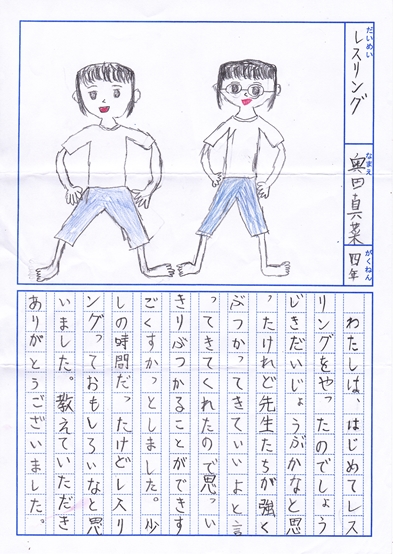 だいめい
レスリング
なまえ
奥田真菜
がくねん
四年
わたしは、はじめてレス
リングをやったのでしょう
じきだいじょうぶかなと思
ったけれど先生たちが強く
ぶつかってきていいよと言
ってきてくれたので思いっ
きりぶつかることができす
ごくすかっとしました。少
しの時間だったけどレスリ
ングっておもしろいなと思
いました。教えていただき
ありがとうございました。